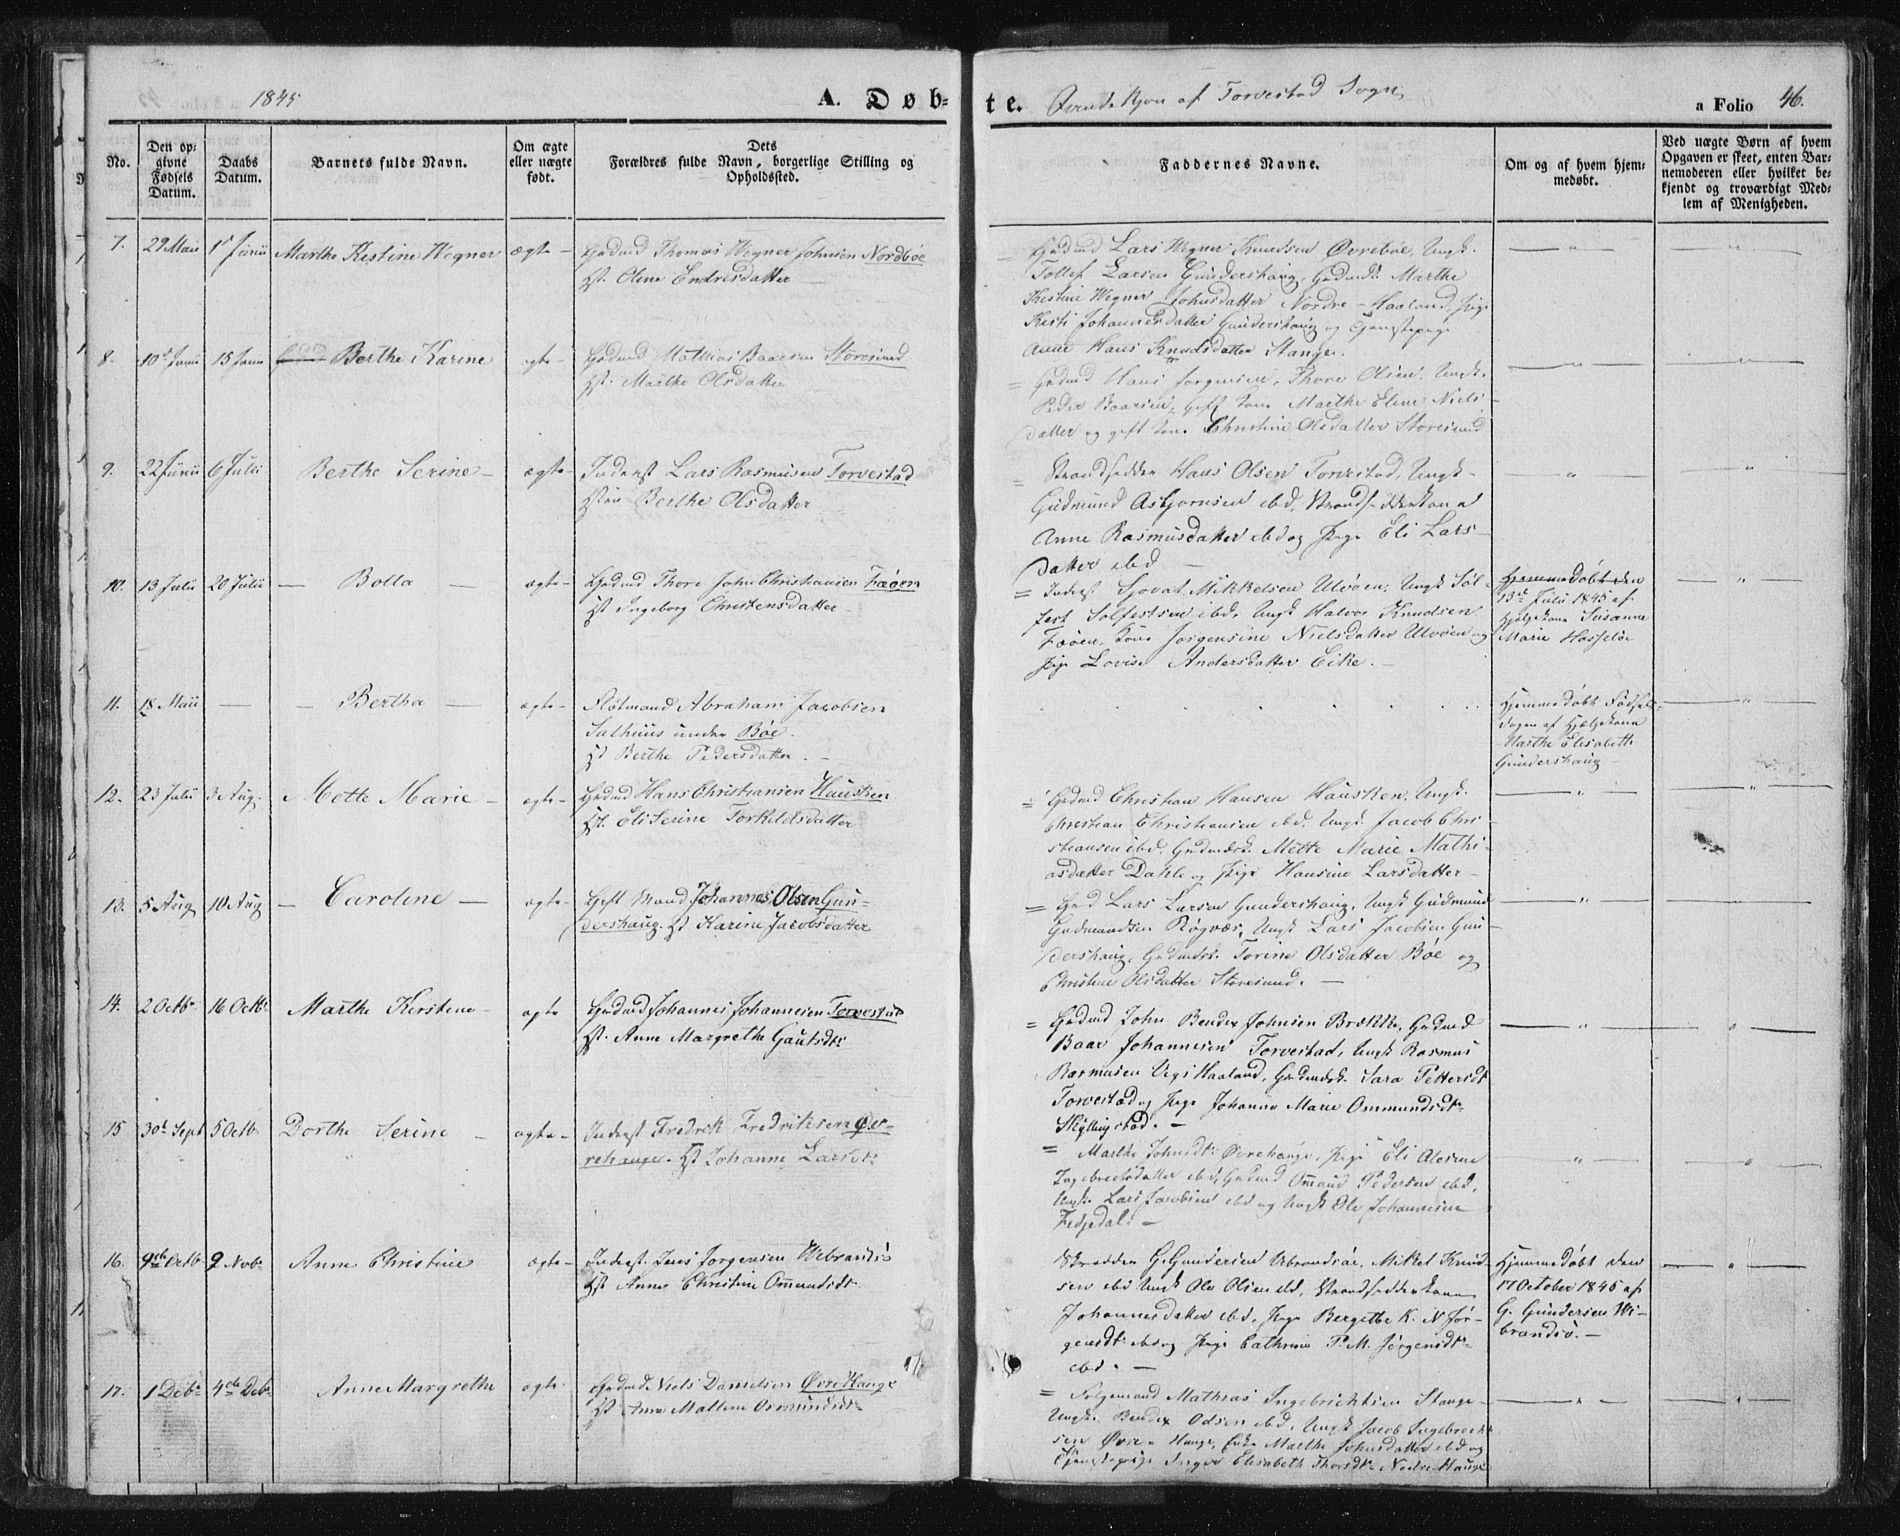 1845
A. Døb-
te. Qvindekjøn af Torvestad Sogn
a Folio 46.
No.
Den op-
givne
Fødsels
Datum.
Daabs
Datum.
Barnets fulde Navn.
Om ægte
eller uægte
født.
Dets
Forældres fulde Navn, borgerlige Stilling og
Opholdssted.
Faddernes Navne.
Om og af hvem hjem-
medøbt.
Ved uægte Børn af hvem
Opgaven er skeet, enten Bar-
nemoderen eller hvilket be-
kjendt og troværdigt Med-
lem af Menigheden.
7. 29 Mai 1st Junii Marthe Kistine Wegner ægte Gaardmd Thomas Wegner Johnsen Nordbøe
Hst. Oline Endresdatter
Gaardmd Lars Wegner Knudsen Øvrebøe, Ungk.
Tollef Larsen Gundershaug, Gaardmdk. Marthe
Kistine Wegner Johnsdatter Nordre-Haaland, Pige
Kisti Johannesdatter Gundershaug og Tjenestepige
Anne Hans Knudsdatter Stange.
8. 10d Junii 15 Junii Berthe Karine ægte Gaardmd Mathias Baarsen Storesund
Hst. Marthe Olsdatter
Gaardmd Hans Jørgensen, Thore Olsen, Ungk.
Peder Baarsen, gift Kone Marthe Eline Niels-
datter og gift Kone Christine Olsdatter Storesund
9. 22 Junii 6 Julii Berthe Serine ægte Inderst Lars Rasmusen Torvestad
Hstru Berthe Olsdatter
Strandsidder Hans Olsen Torvestad, Ungk.
Gudmund Asbjørnsen ibd, Strandsidderkone
Anne Rasmusdatter ibd og Pige Eli Lars-
datter ibd
10. 13 Julii 20 Julii Bolla ægte Gaardmd Thore John Christiansen Fæøen
Hst Ingeborg Christensdatter
Inderst Sjovat Mikkelsen Utvøen, Ungk Søl-
fest Solfestsen ibd, Ungk Halvor Knudsen
Fæøen, Kone Jørgensine Nielsdatter Utvøen og
Pige Lovise Andersdatter Eike.
Hjemmedøbt den
13d Julii 1845 af
Hjelpekone Susanne
Marie Hasseløe
11. 18 Maii Bertha ægte Abraham Jacobsen
Salhuus under Bøe.
Hst Berthe Pedersdatter
Hjemmedøbt Fødsels-
dagen af Hjelpekone
Marthe Elisabeth
Gundershaug
12. 23 Julii 3 Aug. Mette Marie ægte Gaardmd Hans Christiansen Hausken
Hst. Eli Serine Torkildsdatter
Gaardmd Christian Hansen Hausken, Ungk.
Christian Christiansen ibd, Ungk. Jacob Chri-
stiansen ibd, Gaardmdsk. Mette Marie Mathi-
asdatter Dahle og Pige Hansine Larsdatter
13. 5 Aug 10 Aug Caroline ægte Gift Mand Johannes Olsen Gun-
dershaug. Hst Karine Jacobsdatter
Gmd Lars Larsen Gundershaug, Ungk Gudmund
Gudmundsen Røgvær, Ungk Lars Jacobsen Gun-
dershaug, Gaardmdsk. Torine Olsdatter Bøe og
Christine Olsdatter Storesund.
14. 2 Octbr 16 Octbr Marthe Kirstine ægte Gaardmd Johannes Johannesen Torvestad
Hst. Anne Margrethe Gautsdtr
Gaardmd John Bendix Johnsen Brække, Gaardmd
Baar Johannesen Torvestad, Ungk Rasmus
Rasmusen Haaland, Gaardmdsk. Sara Pettersdt
Torvestad og Pige Johanne Marie Ommundsdtr
Skyllingstad.
15 30d Sept 5 Octb Dorthe Serine ægte Inderst Fredrik Fredriksen Øv-
rehauge. Hst Johanne Larsdtr
Marthe Johnsdtr Øvrehauge, Pige Eli Olesine
Ingebretsdatter ibd, Gaardmd Omund Pedersen ibd,
Ungk. Lars Jacobsen ibd og Ungk Ole Johannesen
16. 9de Octb 9 Novbr Anne Christine ægte Inderst Jens Jørgensen Wibrandsø
Hst Anne Christine Ommundsdtr
Skrædder G. Gundersen Wibrandsøe, Mikel Knud-
sen ibd Ungk Ole Olsen ibd, Strandsidderkone
Johannesdatter ibd, Pige Bergithe K. N Jør-
gensdtr ibd og Pige Cathrine P. M. Jørgensdtr
ibd.
Hjemmedøbt den
17 October 1845 af
G. Gundersen Wi-
brandsø.
17. 1 Debr 4de Debr Anne Margrethe ægte Gaardmd Niels Danielsen Øvre Hauge
Hst Anne Mallene Ommundsdtr
Følgemand Mathias Ingebrichtsen Stange
Ungk. Bendix Odsen ibd, Ungk Jacob Ingebrecht-
sen Øvre-Hauge, Enke Marthe Johnsdatter ibd og
Tjenestepige Inger Elisabeth Thorsdtr Nedre Hauge